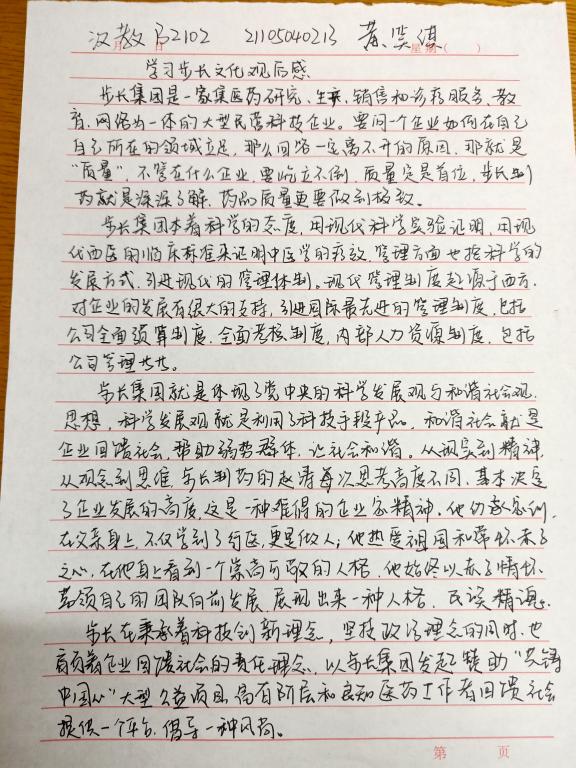 汉教 B2102 21105040213 黄笑缜
月 日 星期( )
学习步长文化观后感
步长集团是一家集医药研究、生产、销售和诊疗服务、教
育、网络为一体的大型民营科技企业。要问一个企业如何在自己
自己所在的领域立足,那么回答一定离不开的原因,那就是
“质量”,不管在什么企业,要屹立不倒,质量定是首位,步长制
药就是深深了解,药品质量更要做到极致。
步长集团本着科学的态度,用现代科学实验证明,用现
代西医的临床标准来证明中医学的疗效,管理方面也按科学的
发展方式,引进现代的管理体制。现代管理制度起源于西方,
对企业的发展有很大的支持,引进国际最先进的管理制度,包括
公司全面预算制度,全面考核制度,内部人力资源制度,包括
公司管理共共。
步长集团就是体现了党中央的科学发展观与和谐社会观,
思想,科学发展观就是利用了科技手段产品,和谐社会就是
企业回馈社会,帮助弱势群体,让社会和谐。从现实到精神,
从观念到思维,步长制药的赵涛每次思考高度不同,基本决定
了企业发展的高度,这是一种难得的企业家精神。他仍家念例,
在父亲身上,不仅学到了行医,更是做人;他热爱祖国和常怀赤子
之心,在他身上看到一个崇高可敬的人格,他始终以赤子情怀
带领自己的团队向前发展,展现出来一种人格,民族精神。
步长在秉承着科技创新理念,坚持政治理念的同时,也
肩负着企业回馈社会的责任理念,以步长集团发起赞助“共铸
中国心”大型公益项目,为有阶层和良知医药工作者回馈社会
提供一个平台,倡导一种风尚。
第 页